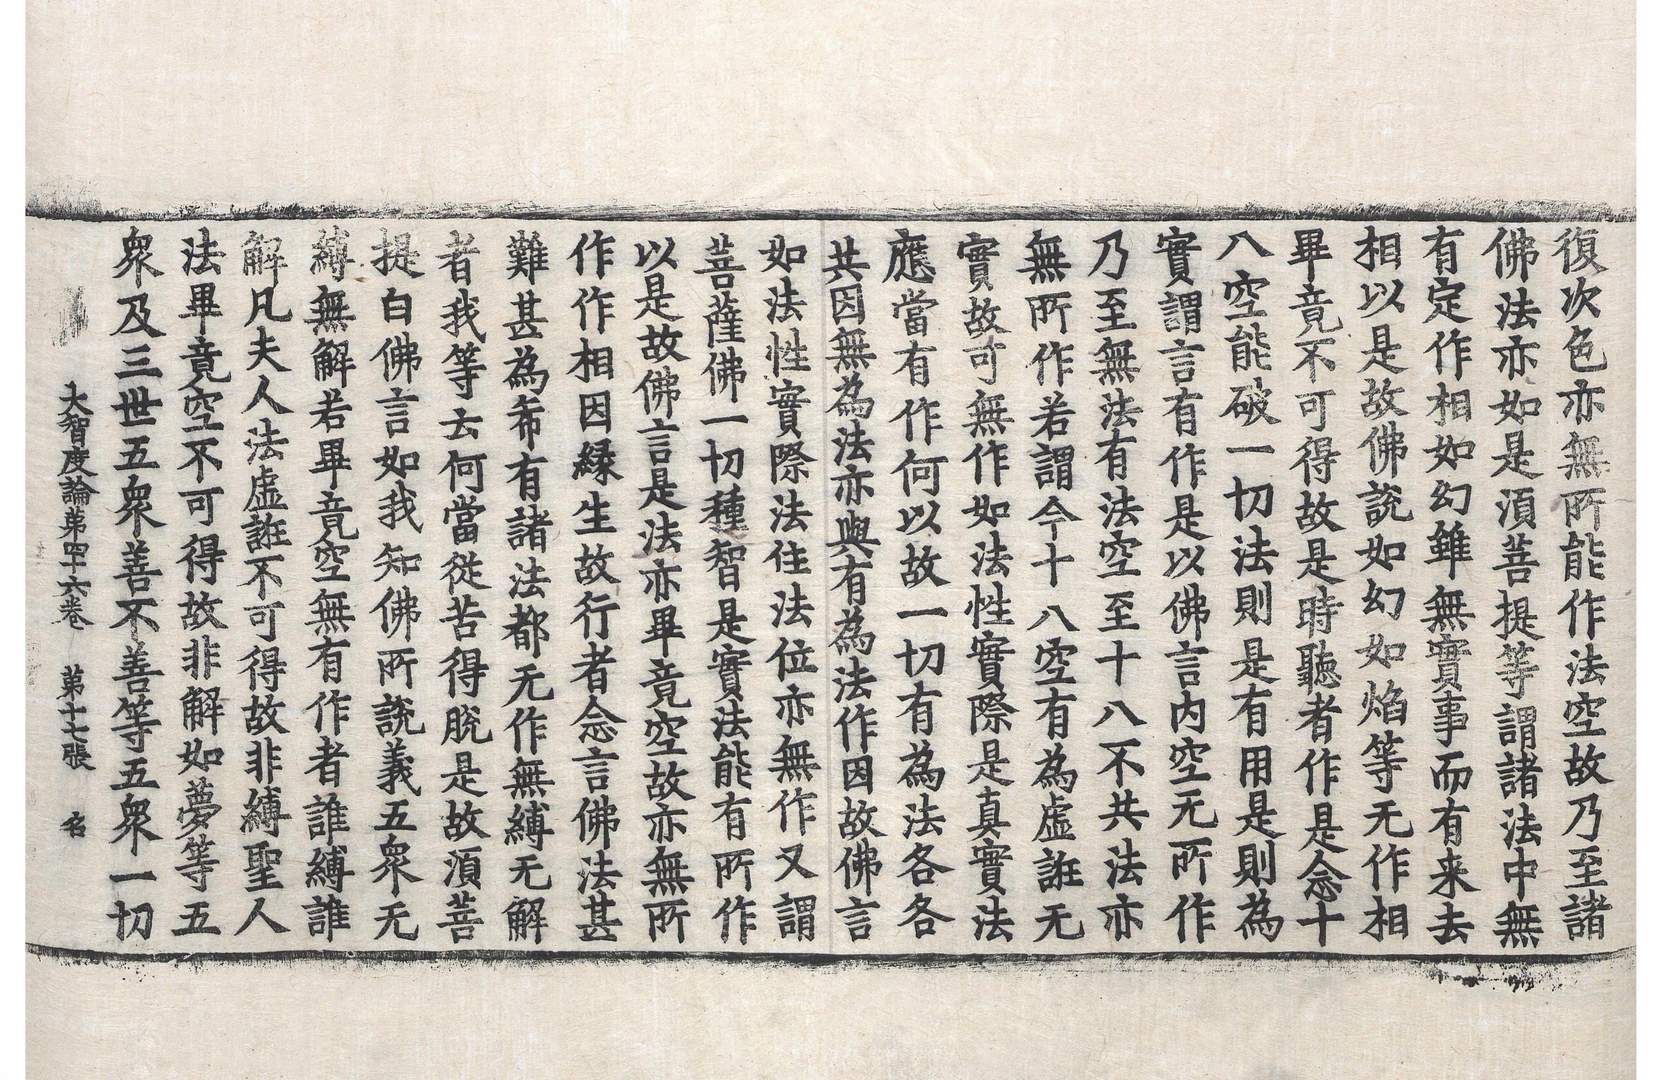 復次色亦無所能作法空故乃至諸
佛法亦如是湏菩提等謂諸法中無
有定作相如幻雖無實事而有来去
相以是故佛說如幻如焰等无作相
畢竟不可得故是時聽者作是念十
八空能破一切法則是有用是則為
實謂言有作是以佛言內空无所作
乃至無法有法空至十八不共法亦
無所作若謂今十八空有為虛誑无
實故可無作如法性實際是真實法
應當有作何以故一切有為法各各
共因無為法亦與有為法作因故佛言
如法性實際法住法位亦無作又謂
菩薩佛一切種智是實法能有所作
以是故佛言是法亦畢竟空故亦無所
作作相因緣生故行者念言佛法甚
難甚為希有諸法都无作無縛无解
者我等云何當從苦得脫是故湏菩
提白佛言如我知佛所說義五眾无
縛無解若畢竟空無有作者誰縛誰
解凡夫人法虛誑不可得故非縛聖人
法畢竟空不可得故非解如夢等五
眾及三世五眾善不善等五眾一切
大智度論第四十六卷 第十七張 名